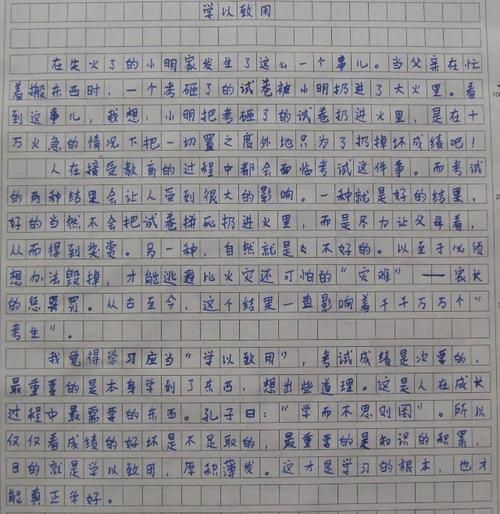 学以致用
在失火了的小明家发生了这么一个事儿。当父亲在忙
着搬东西时,一个考砸了的试卷被小明扔进了大火里。看
到这事儿,我想,小明把考砸了的试卷扔进火里,是在十
万火急的情况下把一切置之度外地只为了扔掉坏成绩吧!
人在接受教育的过程中都会面临考试这件事。而考试
的两种结果会让人受到很大的影响。一种就是好的结果,
好的当然不会把试卷拼死扔进火里,而是尽力让父母看,
从而得到奖赏。另一种,自然就是不好的。以至于必须
想办法毁掉,才能逃避比火灾还可怕的“灾难”——家长
的惩罚。从古至今,这个结果一直影响着千千万万个“
考生”。
我觉得学习应当“学以致用”,考试成绩是次要的,
最重要的是本身学到了东西,想出些道理。这是人在成长
过程中最需要的东西。孔子曰:“学而不思则罔”。所以
仅仅看成绩的好坏是不足取的,最重要的是知识的积累,
目的就是学以致用,厚积薄发。这才是学习的根本,也才
能真正学好。